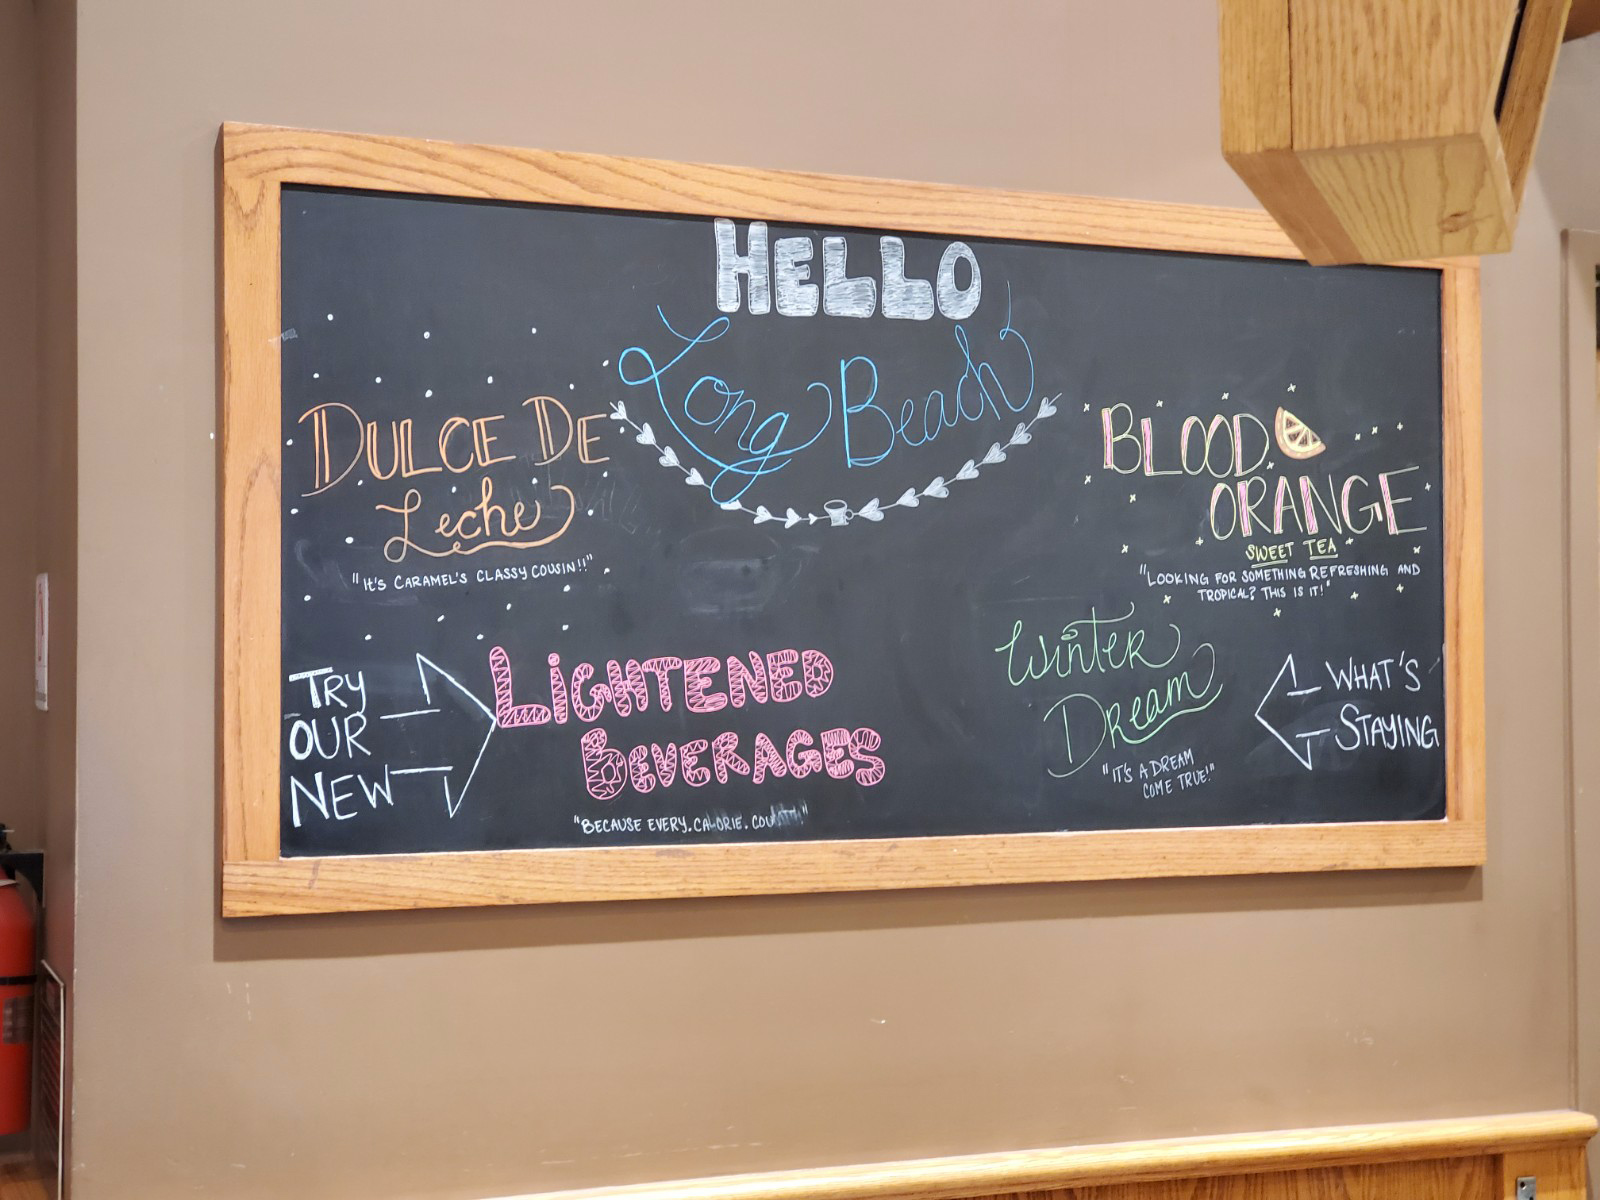 HELLO
Long Beach
DULCE DE
Leche
"IT'S CARAMEL'S CLASSY COUSIN!!"
BLOOD
ORANGE
SWEET TEA
"LOOKING FOR SOMETHING REFRESHING AND
TROPICAL? THIS IS IT!"
TRY
OUR
NEW
LIGHTENED
BEVERAGES
"BECAUSE EVERY.CALORIE.
Winter
Dream
"IT'S A DREAM
COME TRUE!"
WHAT'S
STAYING